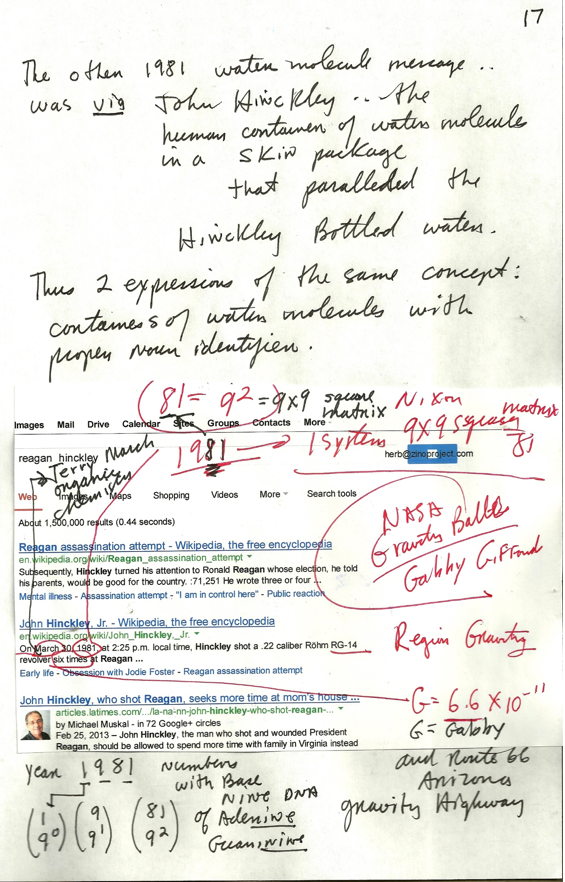 17
The other 1981 water molecule message ..
was via John Hinckley .. the
human container of water molecules
in a skin package
that paralleled the
Hinckley Bottled water.
Thus 2 expressions of the same concept:
containers of water molecules with
proper noun identifier.
(81 = 9² = 9x9 square matrix
Nixon
9x9 square matrix
81
Images Mail Drive Calendar Sites Groups Contacts More
1981 → 1 System
reagan hinckley
herb@zinoproject.com
Terry March
organic
chemistry
Web Images Maps Shopping Videos More Search tools
About 1,500,000 results (0.44 seconds)
NASA
Gravity
Gabby
Reagan assassination attempt - Wikipedia, the free encyclopedia
en.wikipedia.org/wiki/Reagan_assassination_attempt
Subsequently, Hinckley turned his attention to Ronald Reagan whose election, he told
his parents, would be good for the country. :71,251 He wrote three or four ...
Mental illness - Assassination attempt - "I am in control here" - Public reaction
John Hinckley, Jr. - Wikipedia, the free encyclopedia
en.wikipedia.org/wiki/John_Hinckley,_Jr.
On March 30, 1981, at 2:25 p.m. local time, Hinckley shot a .22 caliber Röhm RG-14
revolver six times at Reagan ...
Region Gravity
Early life - Obsession with Jodie Foster - Reagan assassination attempt
John Hinckley, who shot Reagan, seeks more time at mom's house ...
articles.latimes.com/.../la-na-nn-john-hinckley-who-shot-reagan-...
by Michael Muskal - in 72 Google+ circles
Feb 25, 2013 – John Hinckley, the man who shot and wounded President
Reagan, should be allowed to spend more time with family in Virginia instead
G = 6.6 x 10⁻¹¹
G = Gabby
and Route 66
Arizona
gravity Highway
year 1981 Numbers
with Base
Nine DNA
of Adenine
Guanine
(1 9⁰) (9 9¹) (81 9²)